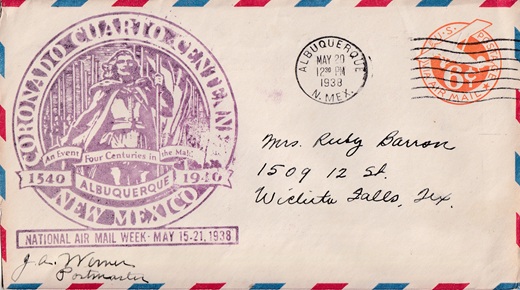 CORONADO CUARTO CENTENNIAL
An Event Four Centuries in the Making
1540 ALBUQUERQUE 1940
NEW MEXICO
NATIONAL AIR MAIL WEEK - MAY 15-21, 1938
J.A. Werner
Postmaster
ALBUQUERQUE
MAY 20
12 30 PM
1938
N. MEX.
U.S. POSTAGE
6¢
AIR MAIL
Mrs. Ruby Barron
1509 12 St.
Wichita Falls, Tex.